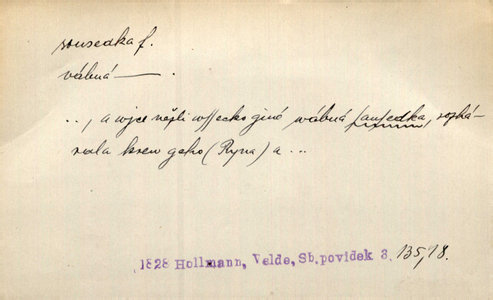 sousedka f.
vábná — .
.., a wjce nežli wſſecko giné wábná ſauſedka, rozhá-
rala krew geho (Ryna) a ...
1828 Hollmann, Velde, Sb.povídek 3. 135,18.